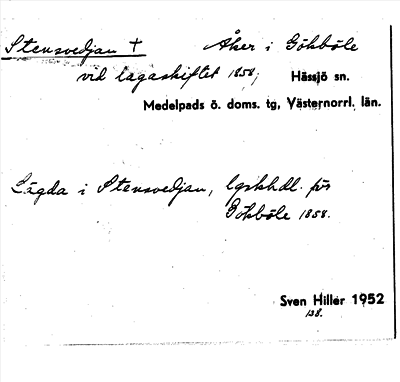 Stensvedjan † Åker i Gökböle
vid lagaskiftet 1858; Hässjö sn.
Medelpads ö. doms. tg, Västernorrl. län.
Lägda i Stensvedjan, lgskhdl. för
Gökböle 1858.
Sven Hiller 1952
138.